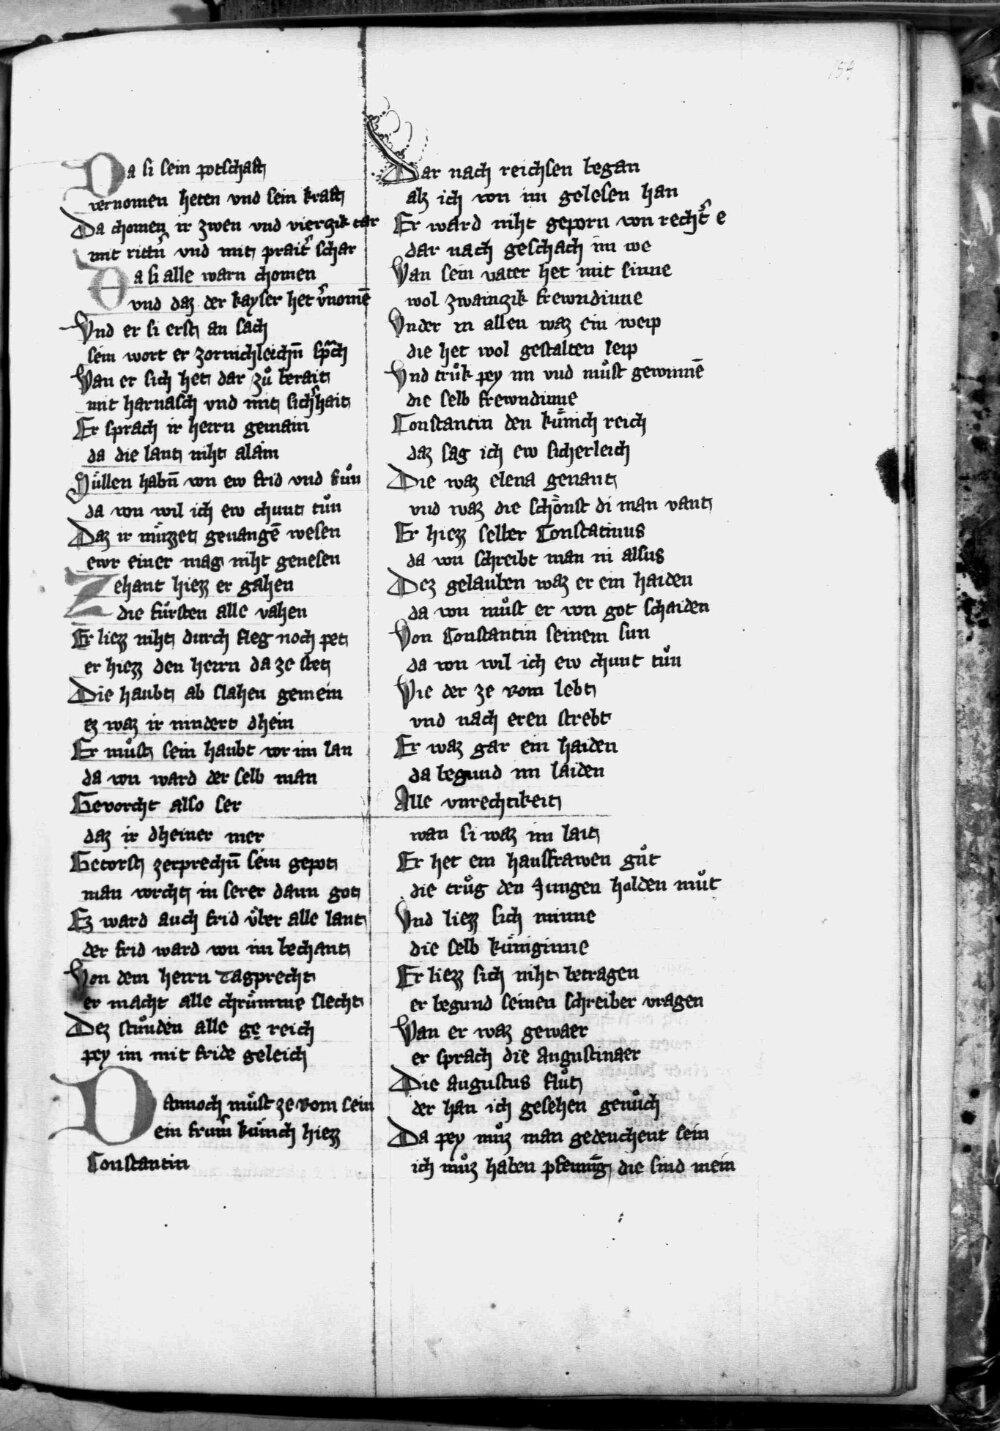 159
Da si sein potschaft
vernomen heten vnd sein kraft
Da chomen ir zwen vnd vierczik dar
mit rittn̄ vnd mit prait̓ schar
Da si alle warn chomen
vnd daz der kayser het v̓nomē
Vnd er si erst an sach
sein wort er zornichleichn̄ sp̄ch
Wan er sich het dar zuͦ berait
mit harnasch vnd mit sich̓hait
Er sprach ir herrn gemain
da die lant niht alain
Suͤllen habn̄ von ew frid vnd suͦn
da von wil ich ew chunt tuͦn
Daz ir muͤzzet geuangē wesen
ewr einer mag niht genesen
Zehant hiezz er gahen
die fuͤrsten alle vahen
Er liezz niht durch fleg noch pet
er hiezz den herrn da ze stet
Die haubt ab slahen gemein
ez waz ir nindert dhein
Er muͦst sein haubt vor im lan
da von ward der selb man
Gevorcht also ser
daz ir dheiner mer
Getorst zerprechn̄ sein gepot
man vorcht in serer dann got
Ez ward auch frid vͤber alle lant
der frid ward von im bechant
Von dem herrn Tagprecht
er macht alle chruͤmme slecht
Dez stuͦnden alle ge reich
pey im mit fride geleich
Dannoch muͦst ze rom sein
ein frum̄ kuͤnich hiezz
Constantin
Dar nach reichsen began
alz ich von im gelesen han
Er ward niht geporn von recht̓ e
dar nach geschach im we
Wan sein vater het mit sinne
wol zwainczik frewndinne
Vnder in allen waz ein weip
die het wol gestalten leip
Vnd truͦk pey im vnd muͦst gewinnē
die selb frewndinne
Constantin den kuͤnich reich
daz sag ich ew sicherleich
Die waz elena genant
vnd waz die schoͤnst di man vant
Er hiezz selber Constatinus
da von schreibt man in alsus
Dez gelauben waz er ein haiden
da von muͦst er von got schaiden
Von Constantin seinem sun
da von wil ich ew chunt tuͦn
Wie der ze rom lebt
vnd nach eren strebt
Er waz gar ein haiden
da begund im laiden
Alle vnrechtikeit
wan si waz im lait
Er het ein hausfrawen guͦt
die truͦg den Jungen holden muͦt
Vnd liezz sich minne
die selb kuͤniginne
Er liezz sich niht betragen
er begund seinen schreiber vragen
Wan er waz gewaer
er sprach die augustinaer
Die augustus fluͦt
der han ich gesehen genuͦch
Da pey muͦz man gedenchent sein
ich muͦz haben pfennīg die sind mein